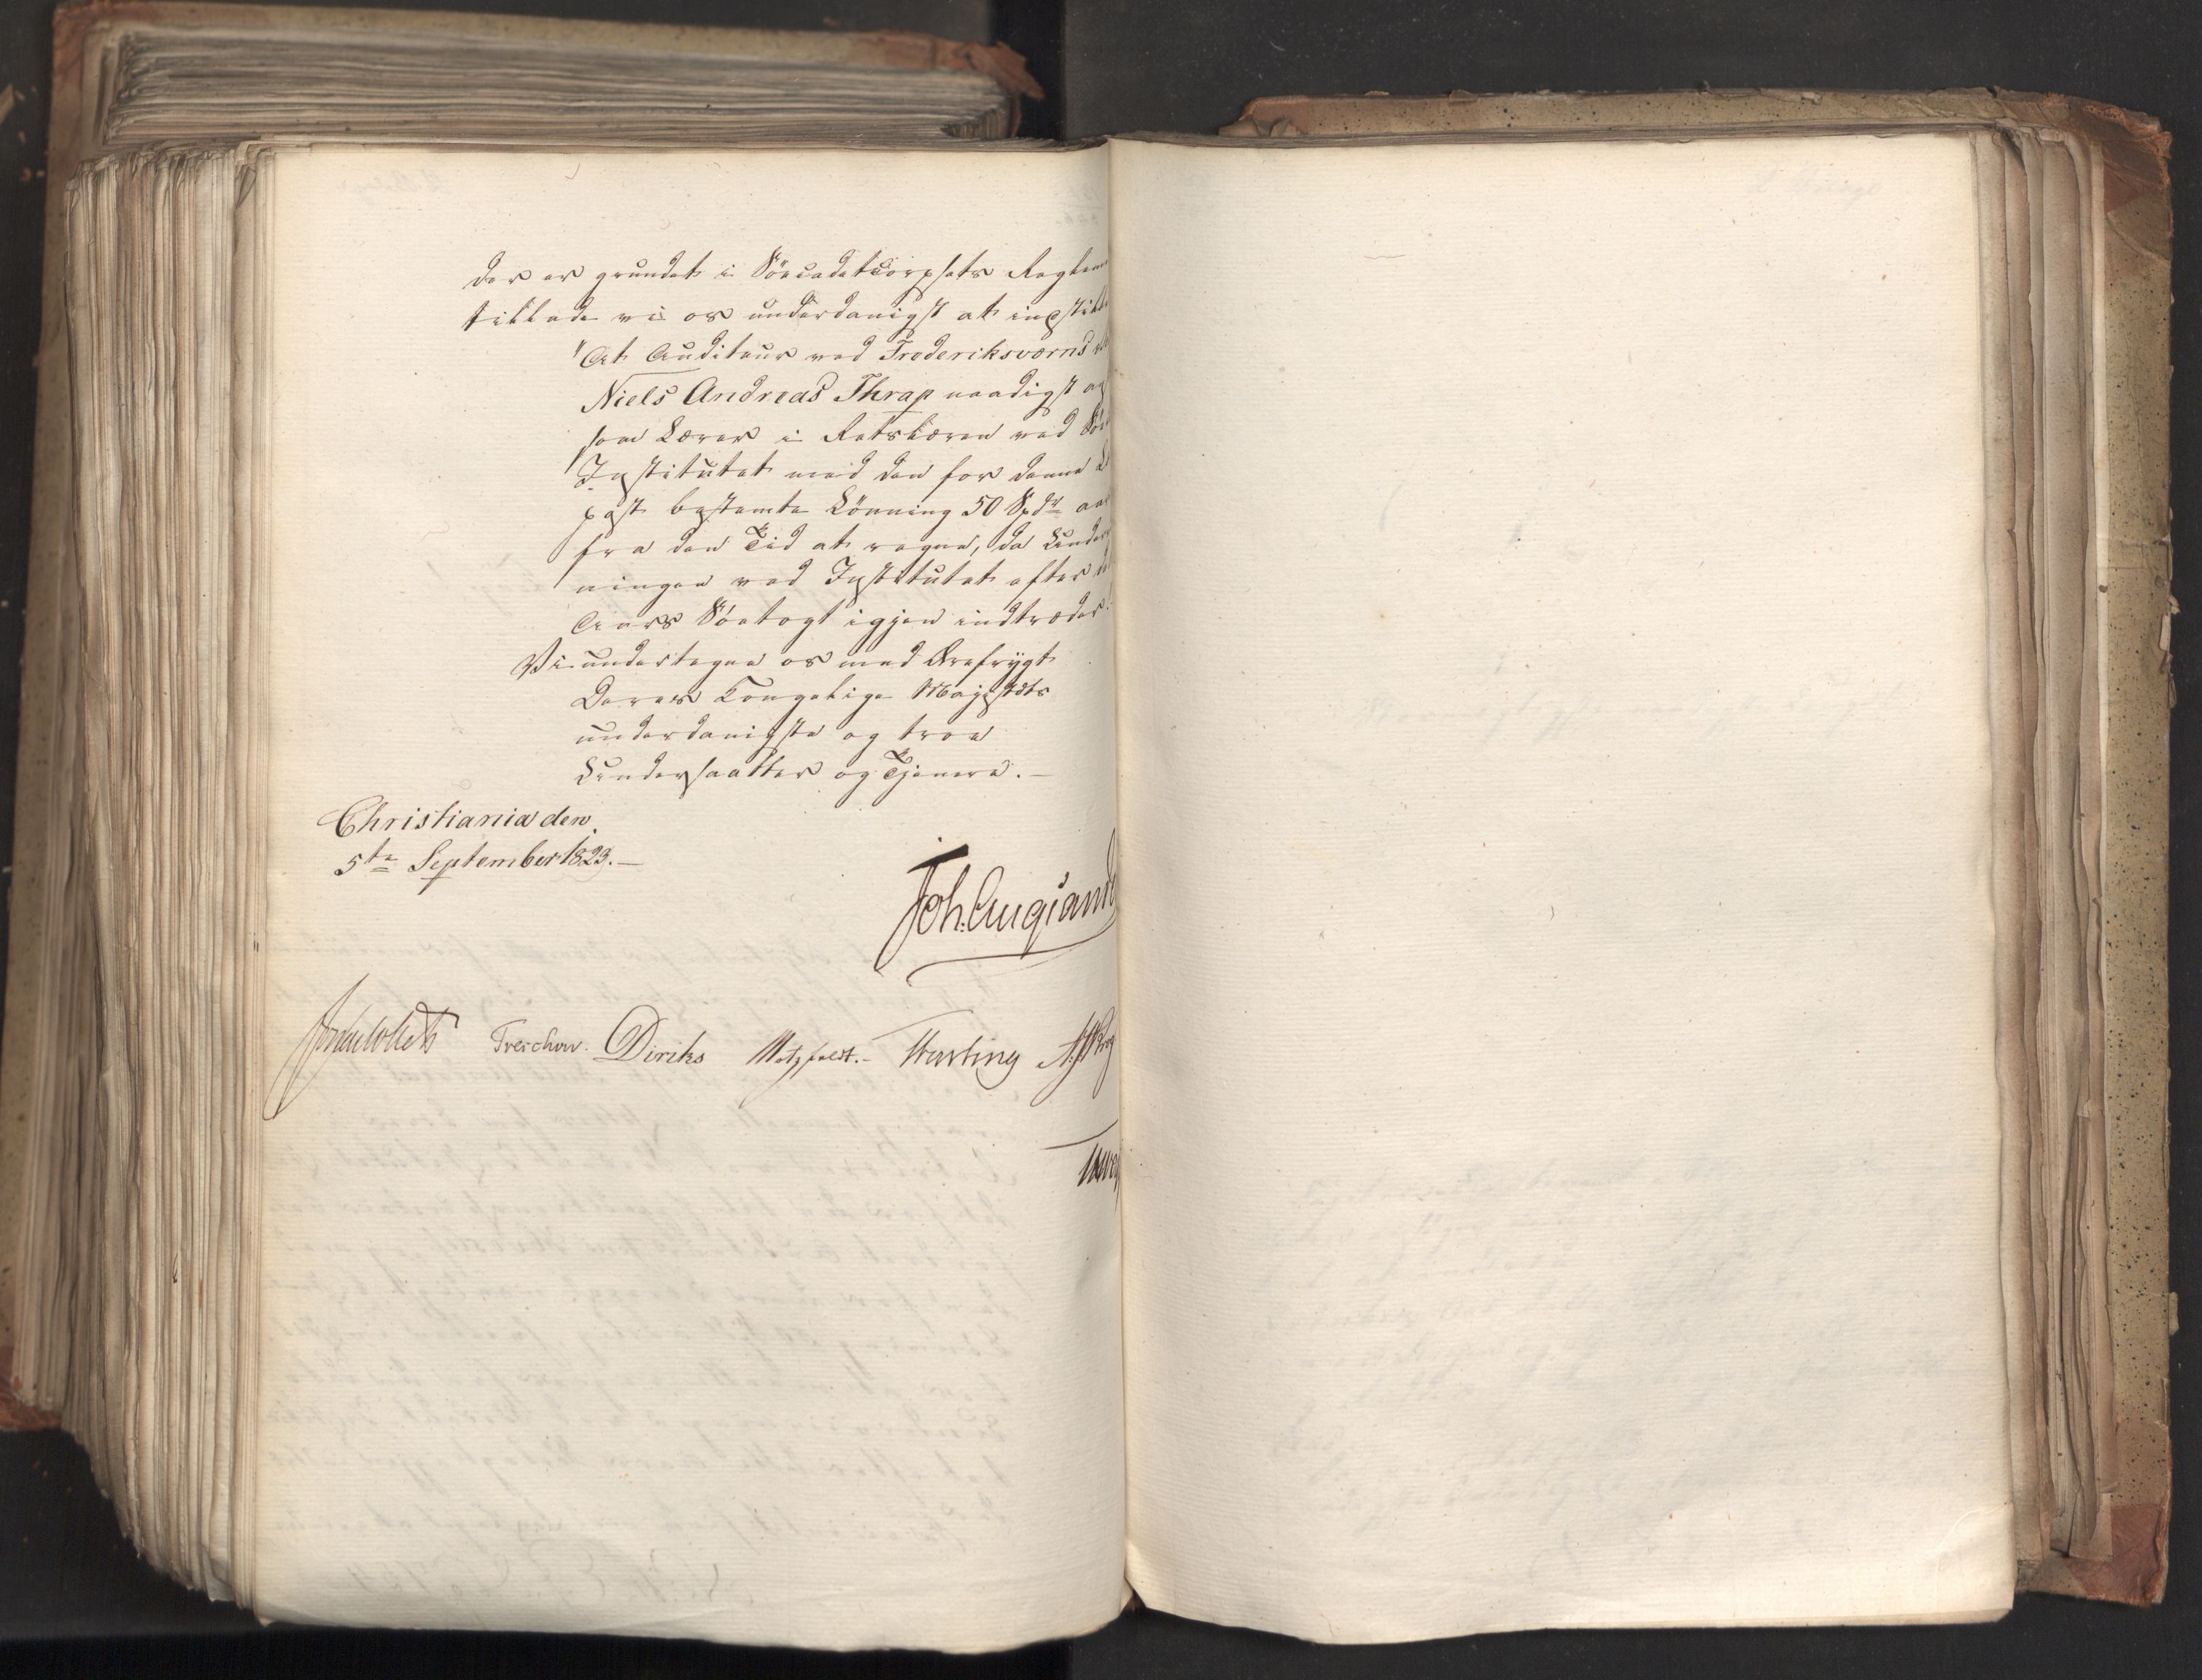 der er grundet i Söecadetcorpsets Reglem
tillade vi os underdanigst at indstille
"At Auditeur ved Frederiksværns
Niels Andreas Thrap naadigst
som Lærer i Retslæren ved Söe
Institutet med den for denne
post bestemte Lönning 50 Spdr
fra den Tid at regne, da Under
ningen ved Institutet efter
Aars Söetogt igjen indtræder.
Vi undertegne os med Ærefrygt
Deres Kongelige Majestæts
underdanigste og troe
Undersaatter og Tjenere. —
Christiania den
5te September 1823. —
Joh. Aug Sand
Treschow. Diriks Motzfeldt. –